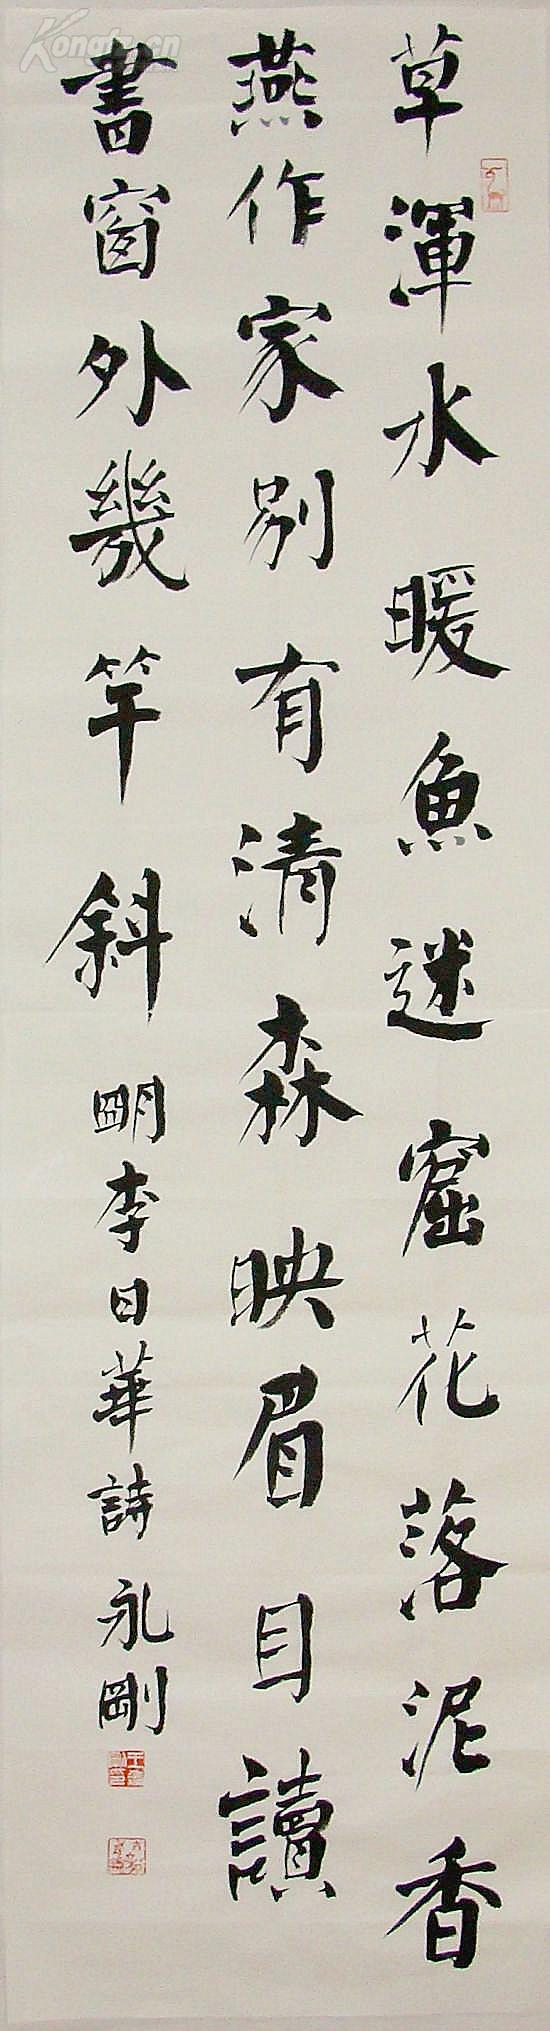 草渾水暖魚迷窟花落泥香
燕作家別有清森映眉目讀
書窗外幾竿斜
明李日華詩永剛
Kongfz.cn